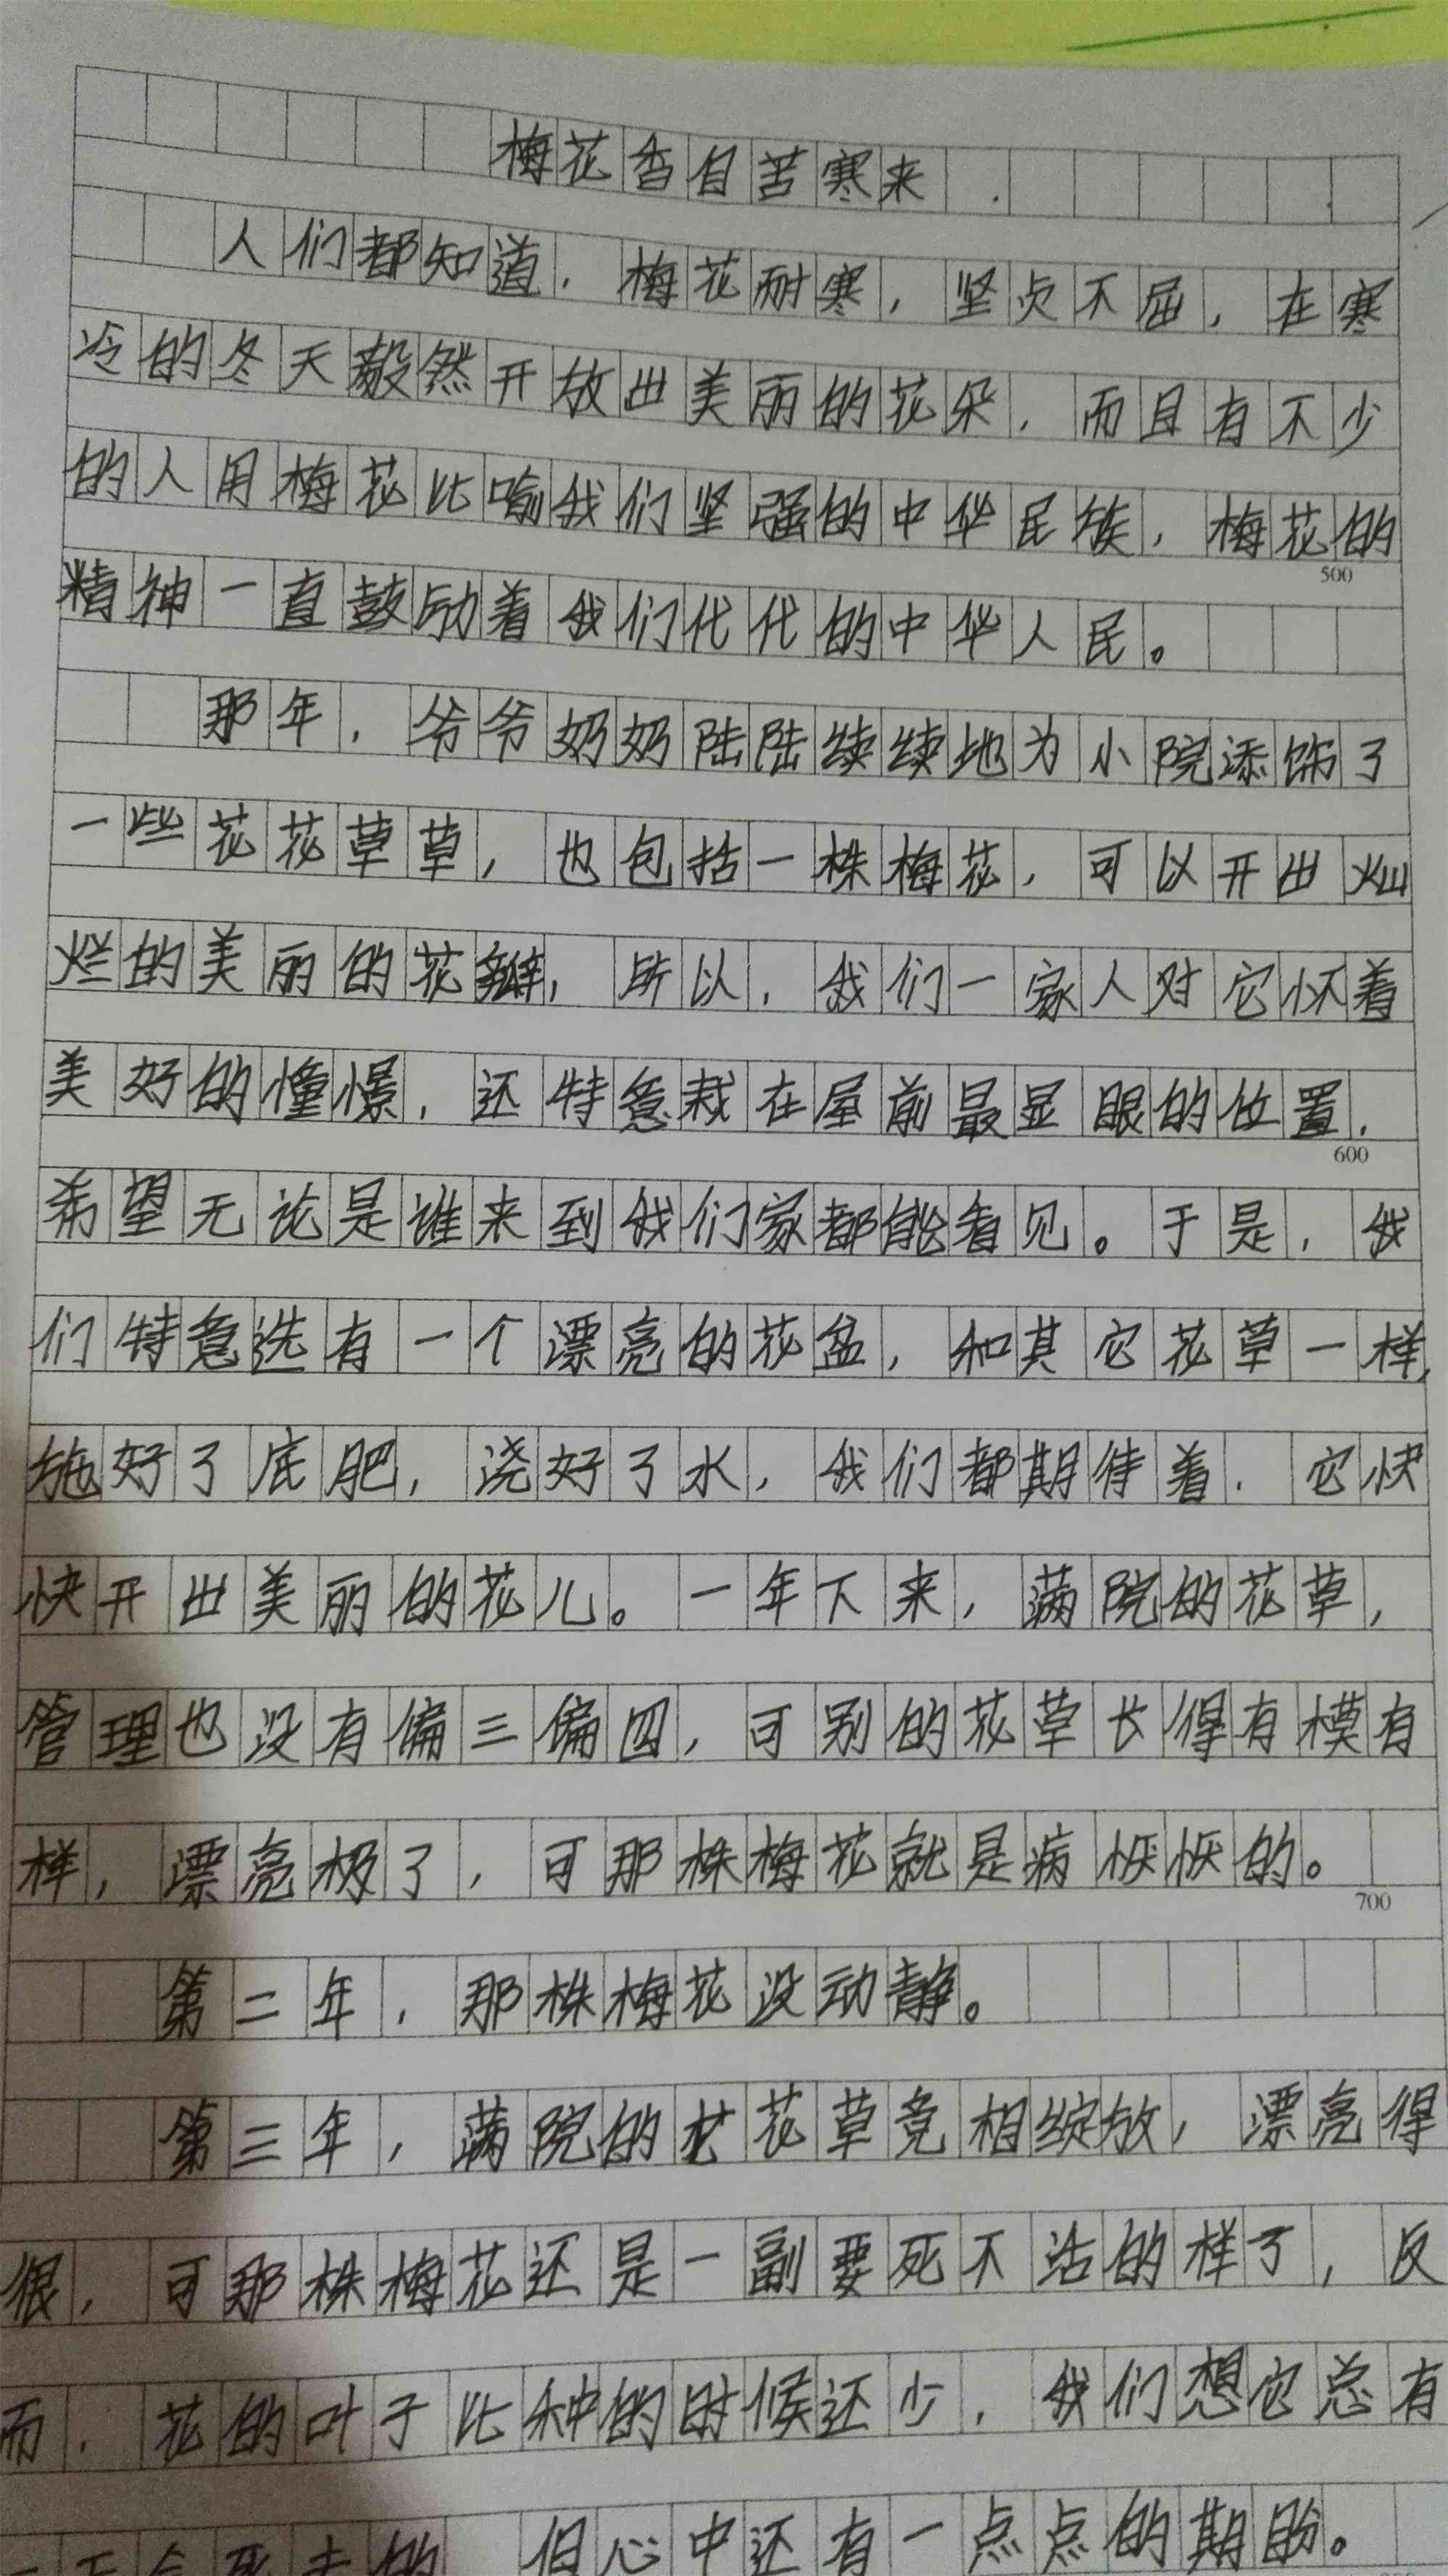 梅花香自苦寒来
人们都知道，梅花耐寒，坚贞不屈，在寒
冷的冬天毅然开放出美丽的花朵，而且有不少
的人用梅花比喻我们坚强的中华民族，梅花的
500
精神一直鼓励着我们代代的中华人民。
那年，爷爷奶奶陆陆续续地为小院添饰了
一些花花草草，也包括一株梅花，可以开出灿
烂的美丽的花瓣，所以，我们一家人对它怀着
美好的憧憬，还特意栽在屋前最显眼的位置，
600
希望无论是谁来到我们家都能看见。于是，我
们特意选有一个漂亮的花盆，和其它花草一样，
施好了底肥，浇好了水，我们都期待着，它快
快开出美丽的花儿。一年下来，满院的花草，
管理也没有偏三偏四，可别的花草长得有模有
样，漂亮极了，可那株梅花就是病恹恹的。
700
第二年，那株梅花没动静。
第三年，满院的花草竞相绽放，漂亮得
很，可那株梅花还是一副要死不活的样子，反
而，花的叶子比种的时候还少，我们想它总有
一天会死去的，但心中还有一点点的期盼。